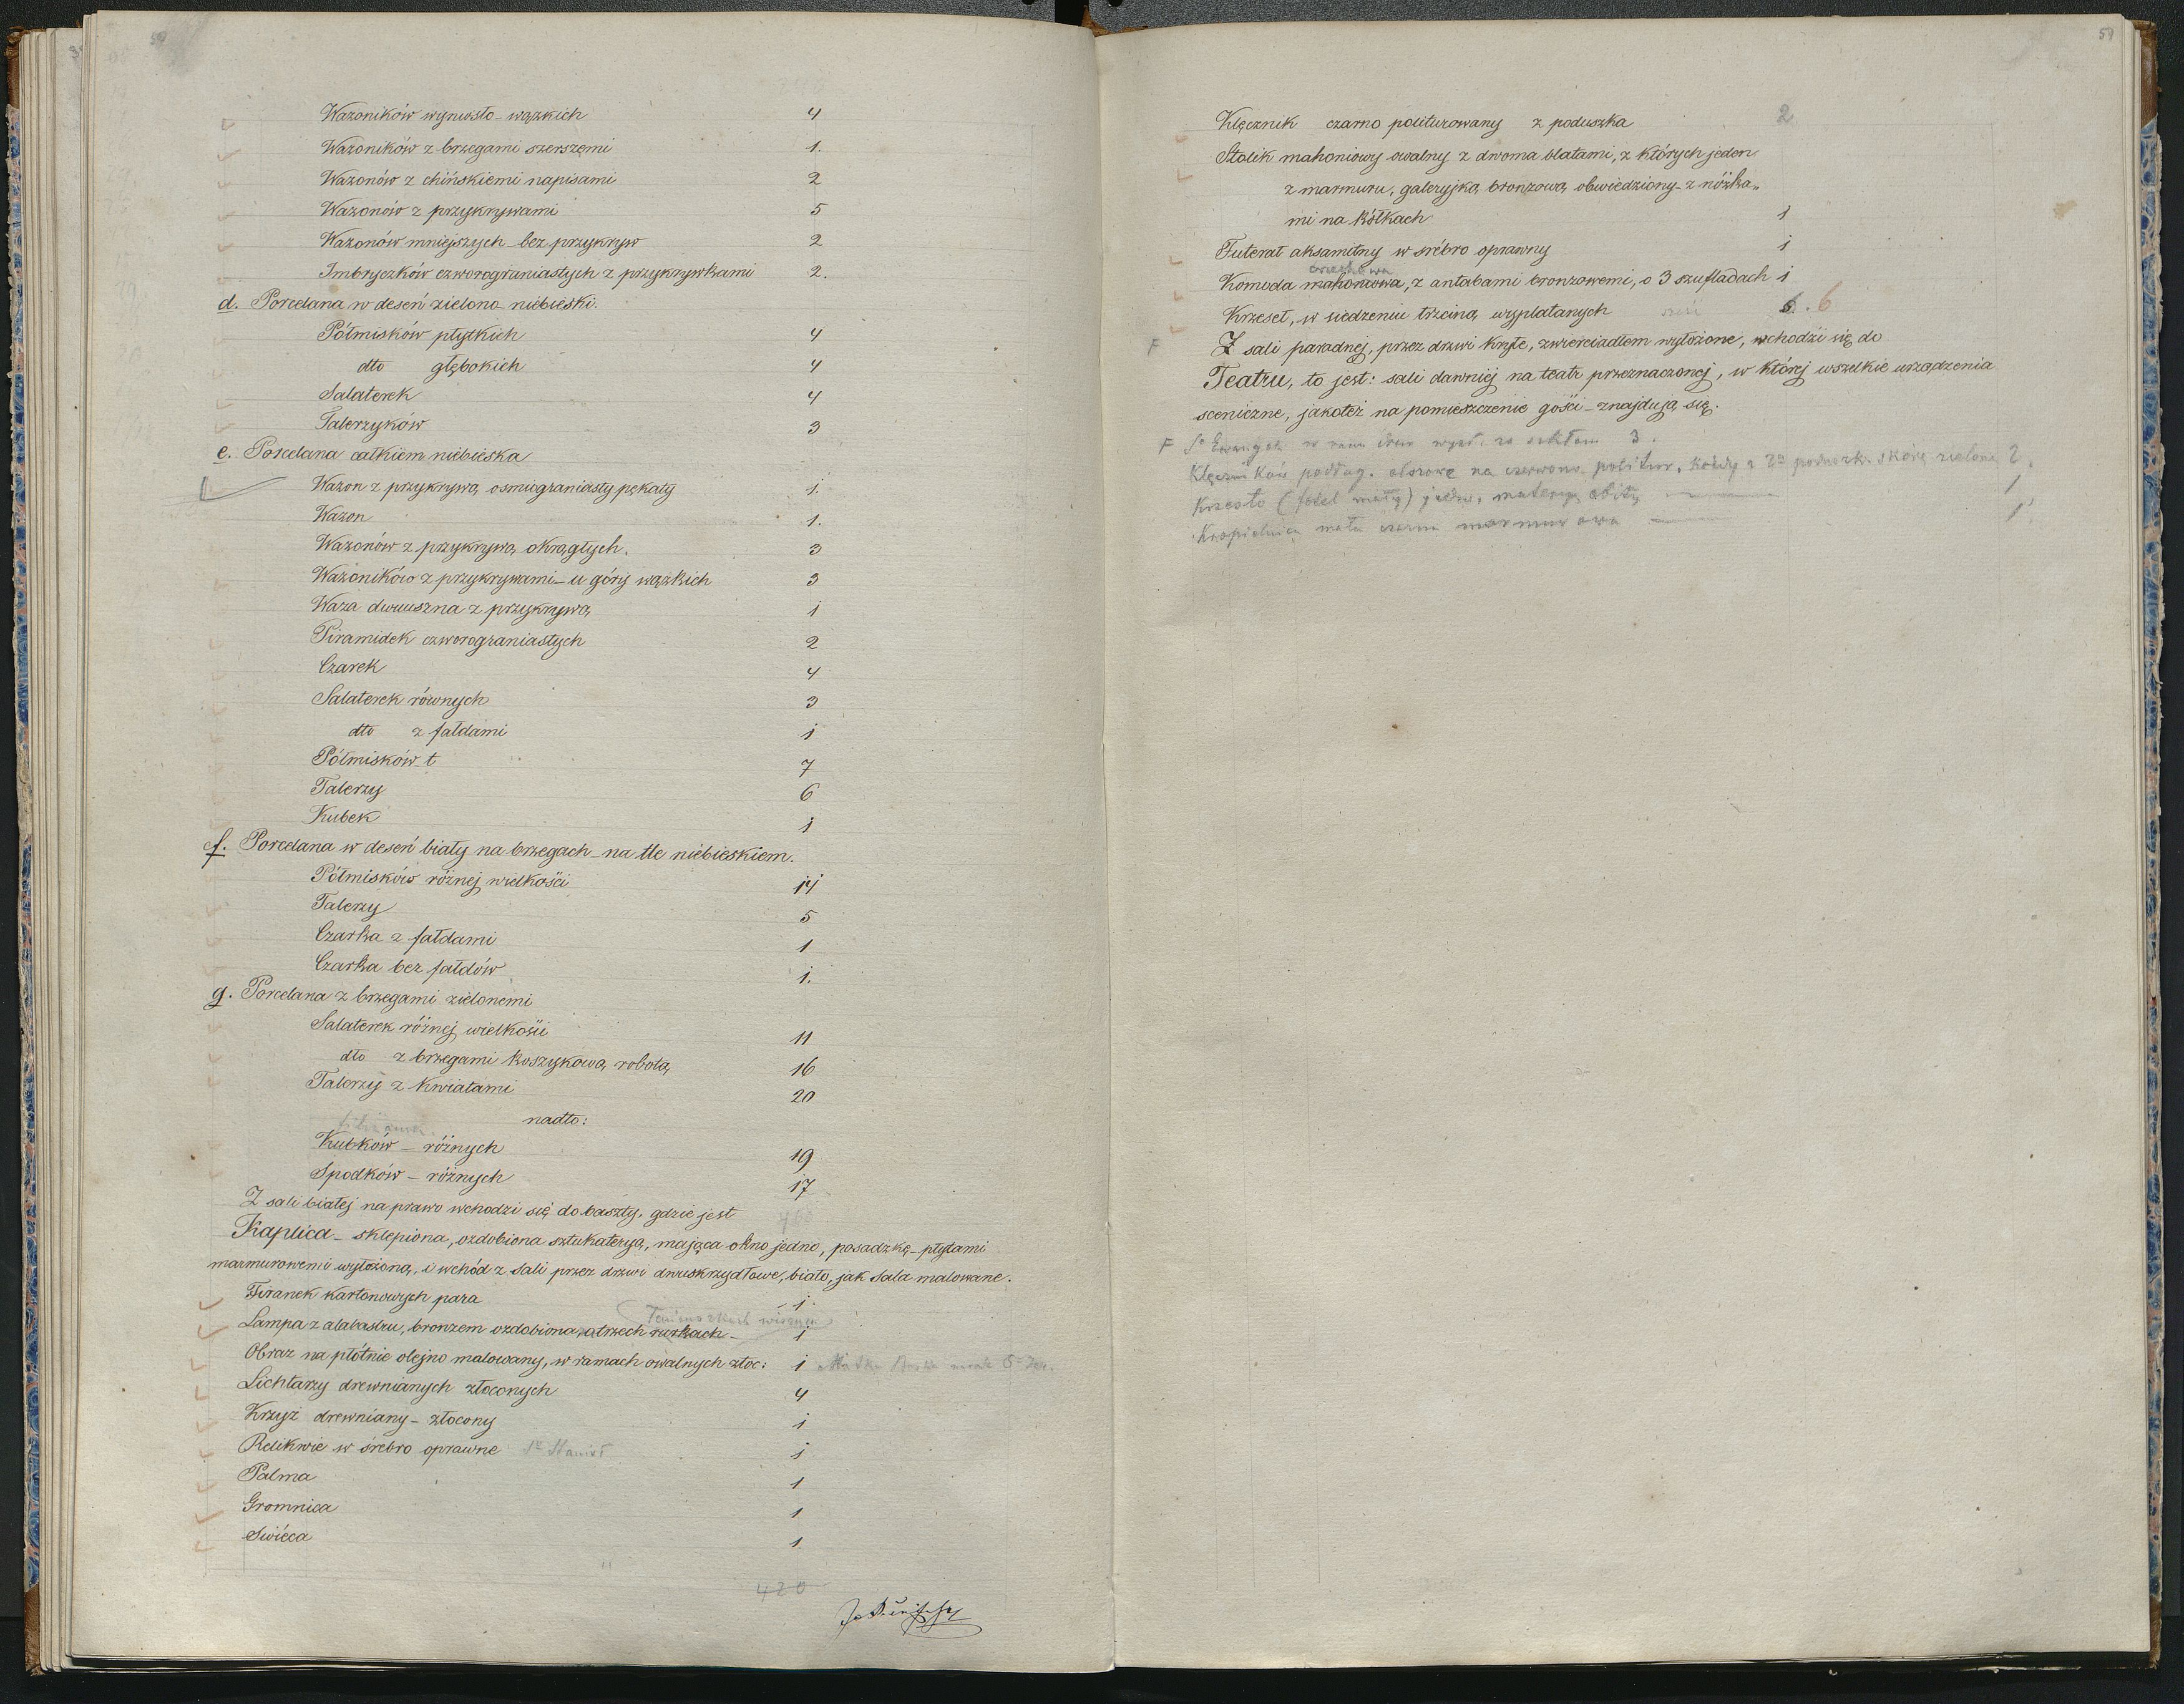 Wazoników wyniosło-wązkich 4
Wazoników z brzegami szerszemi 1.
Wazonów z chińskiemi napisami 2
Wazonów z przykrywami 5
Wazonów mniejszych - bez przykryw 2
Imbryczków czworograniastych z przykrywkami 2.
d. Porcelana w deseń zielono-niebieski.
Półmisków płytkich 4
dto głębokich 4
Salaterek 4
Talerzyków 3
e. Porcelana całkiem niebieska
Wazon z przykrywą osmiograniasty pękaty 1.
Wazon 1.
Wazonów z przykrywą okrągłych. 3
Wazoników z przykrywami - u góry wązkich 3
Waza dwuuszna z przykrywą 1
Piramidek czworograniastych 2
Czarek 4
Salaterek równych 3
dto z fałdami 1
Półmisków t 7
Talerzy 6
Kubek 1
f. Porcelana w deseń biały na brzegach - na tle niebieskiem.
Półmisków różnej wielkości 14
Talerzy 5
Czarka z fałdami 1
Czarka bez fałdów 1.
g. Porcelana z brzegami zielonemi
Salaterek różnej wielkości 11
dto z brzegami koszykową robotą 16
Talerzy z kwiatami 20
nadto:
Kubków - różnych 19
Spodków - różnych 17
Z sali białej na prawo wchodzi się do baszty, gdzie jest
Kaplica - sklepiona, ozdobiona sztukateryą, mająca okno jedno, posadzkę - płytami
marmurowemi wyłożoną, i wchód z sali przez drzwi dwuskrzydłowe, biało, jak sala malowane.
Firanek kartonowych para 1.
Lampa z alabastru, bronzem ozdobiona, o trzech rurkach - 1
Obraz na płótnie olejno malowany, w ramach owalnych złoc: 1 Matka
Lichtarzy drewnianych złoconych 4
Krzyż drewniany - złocony 1
Relikwie w śrebro oprawne 1
Palma 1
Gromnica 1
Swiéca 1
420
59
Klęcznik czarno politurowany z poduszka 2
Stolik mahoniowy owalny z dwoma blatami, z których jeden
z marmuru, galeryjką bronzową obwiedziony - z nóżka„
mi na kółkach 1
Futerał aksamitny w srébro oprawny 1
orzechowa
Komoda mahoniowa, z antabami bronzowemi, o 3 szufladach 1
Krzeseł, w siedzeniu trzciną wyplatanych 6. 6
F Z sali paradnej, przez drzwi kryte, zwierciadłem wyłożone, wchodzi się do
Teatru, to jest: sali dawniéj na teatr przeznaczonej, w któréj wszelkie urządzenia
sceniczne, jakoteż na pomieszczenie gości - znajdują się.
F Sa Ewangeli w ram za szkłem 3.
podług. na czerwono politur, każdy z poduszk. skórą zieloną 2.
Krzesło (fotel mały) materyą obity 1
Kropielnica mała czarna marmurowa 1